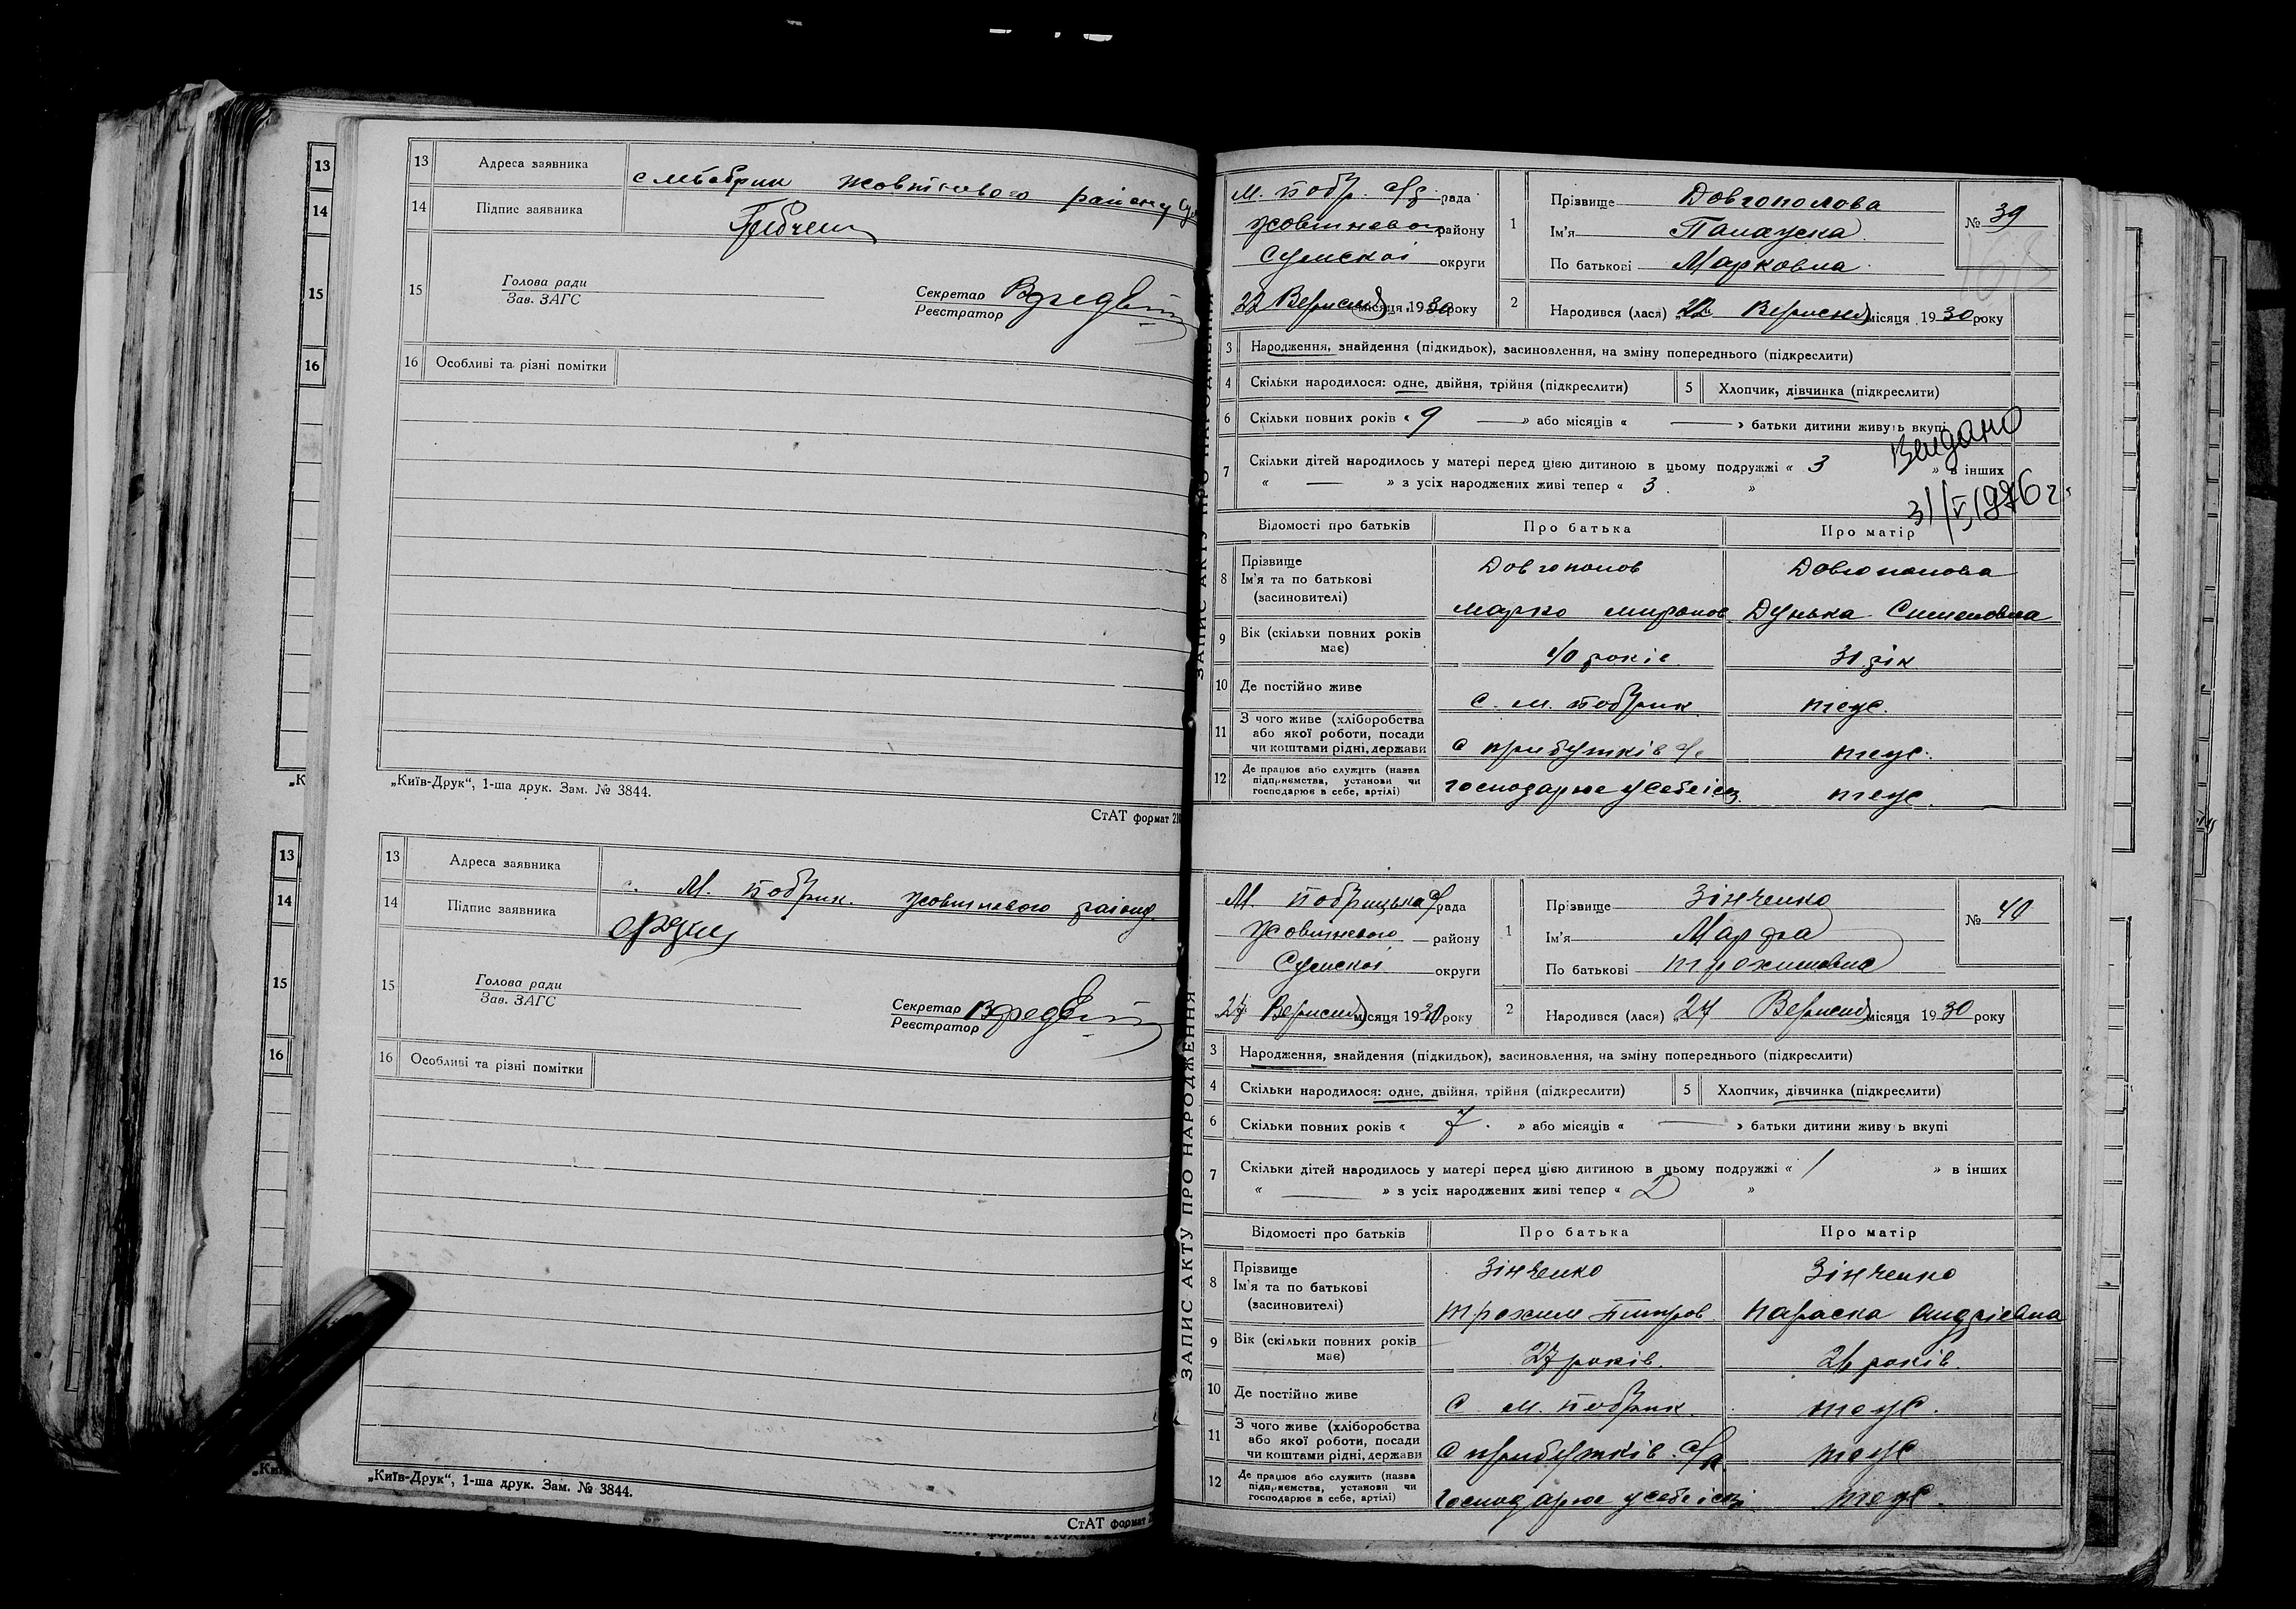 13
14
15
16
„К
13
14
15
16
„Киї
13 Адреса заявника
Жовтнєвого району
14 Підпис заявника
15 Голова ради
Зав. ЗАГС
Секретар
Реєстратор
16 Особливі та різні помітки
„Київ-Друк“, 1-ша друк. Зам. № 3844.
СтАТ формат
13 Адреса заявника
с. М. Побрик. Жовтневого району
14 Підпис заявника
15 Голова ради
Зав. ЗАГС
Секретар
Реєстратор
16 Особливі та різні помітки
„Київ-Друк“, 1-ша друк. Зам. № 3844.
СтАТ формат
ЗАПИС АКТУ ПРО НАРОДЖЕННЯ
М. Побр. с/р рада
Жовтневого району
Сумскої округи
„22 Вересня місяця 1930 року
1 Прізвище Довгополова
Ім'я
По батькові Марковна
№ 39
2 Народився (лася) „22 Вересня місяця 1930 року
3 Народження, знайдення (підкидьок), засиновлення, на зміну попереднього (підкреслити)
4 Скільки народилося: одне, двійня, трійня (підкреслити)
5 Хлопчик, дівчинка (підкреслити)
6 Скільки повних років « 9 » або місяців « — » батьки дитини живуть вкупі
Выдано
7 Скільки дітей народилось у матері перед цією дитиною в цьому подружжі « 3 » в інших
« — » з усіх народжених живі тепер « 3. »
Відомості про батьків
Про батька
Про матір
8 Прізвище
Ім'я та по батькові
(засиновителі)
Довгополов
Марко Миронов
Довгополова
Дунька Сименовна
9 Вік (скільки повних років має)
40 років
31 рік
10 Де постійно живе
с. М. Побрик
теус.
11 З чого живе (хліборобства
або якої роботи, посади
чи коштами рідні, держави
с прибутків с/г
теус.
12 Де працює або служить (назва
підприємства, установи чи
господарює в себе, артілі)
господарює у себе
теус.
ЗАПИС АКТУ ПРО НАРОДЖЕННЯ
М Побрицька с/рада
Жовтневого району
Сумскої округи
„27 Вересня місяця 1930 року
1 Прізвище Зінченко
Ім'я
По батькові Трохимовна
№ 40
2 Народився (лася) „27 Вересня місяця 1930 року
3 Народження, знайдення (підкидьок), засиновлення, на зміну попереднього (підкреслити)
4 Скільки народилося: одне, двійня, трійня (підкреслити)
5 Хлопчик, дівчинка (підкреслити)
6 Скільки повних років « 7. » або місяців « — » батьки дитини живуть вкупі
7 Скільки дітей народилось у матері перед цією дитиною в цьому подружжі « 1 » в інших
« — » з усіх народжених живі тепер « 2 »
Відомості про батьків
Про батька
Про матір
8 Прізвище
Ім'я та по батькові
(засиновителі)
Зінченко
Трохим Питров.
Зінченко
Параска Андрієвна
9 Вік (скільки повних років має)
27 років.
26 років.
10 Де постійно живе
с. М. Побрик.
теус.
11 З чого живе (хліборобства
або якої роботи, посади
чи коштами рідні, держави
с прибутків с/г
теус
12 Де працює або служить (назва
підприємства, установи чи
господарює в себе, артілі)
господарює у себе
теус.